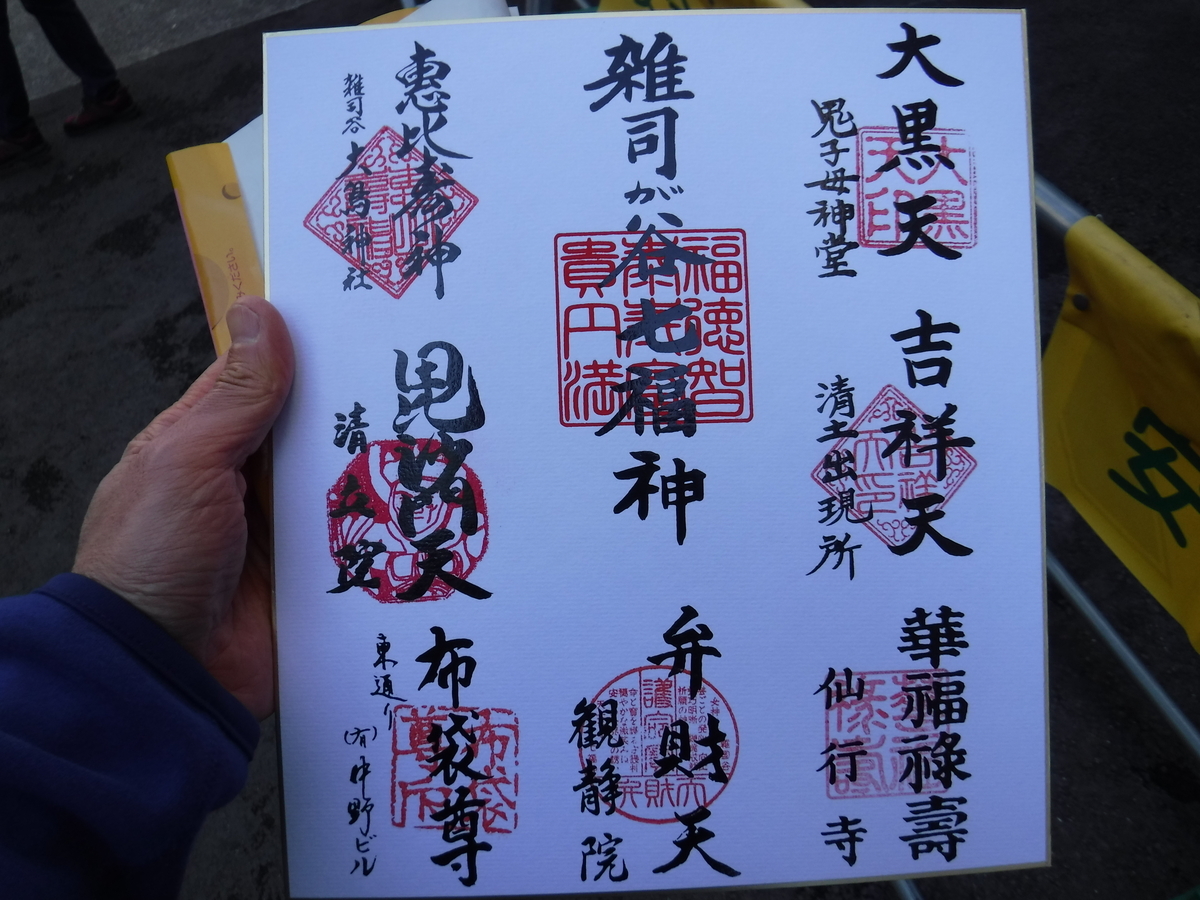 大黒天
鬼子母神堂
大黒
天印
吉祥天
清土出現所
吉祥
天印
華福禄壽
仙行寺
雑司が谷七福神
福徳智
貴円満
弁財天
観静院
弁財天
恵比寿神
雑司谷大鳥神社
毘沙門天
清立院
布袋尊
東通り
(有)中野ビル
布袋
尊印
安